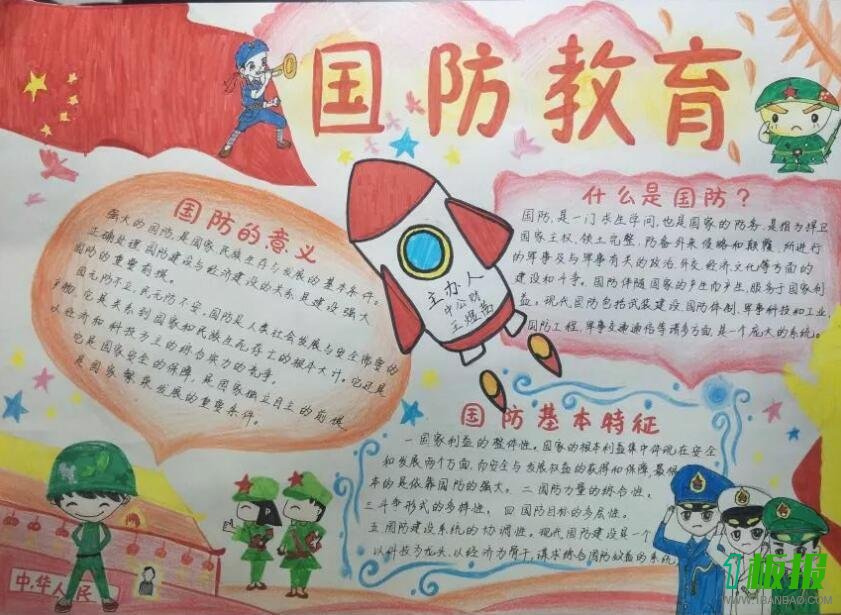 国防教育
国防的意义
强大的国防,是国家、民族生存与发展的基本条件。
正确处理国防建设与经济建设的关系,是建设强大
国防的重要前提。
国无防不立,民无防不安,国防是人类社会发展与安全需要的
产物,它是关系到国家和民族生死存亡的根本大计。它还是
以经济和科技为主的综合实力的竞争。
它是国家安全的保障,是国家独立自主的前提
是国家繁荣发展的重要条件。
主办人
什么是国防?
国防,是一门求生学问,也是国家的防务,是指为捍卫
国家主权、领土完整,防备外来侵略和颠覆,所进行
的军事及与军事有关的政治、外交、经济、文化等方面的
建设和斗争。国防伴随国家的产生而产生,服务于国家利
益。现代国防包括武装建设、国防体制、军事科技和工业、
国防工程、军事交通通信等诸多方面,是一个庞大的系统。
国防基本特征
一国家利益的整体性。国家的根本利益集中体现在安全
和发展两个方面,而安全与发展权益的获得和保障,最根
本的是依靠国防的强大。二国防力量的综合性。
三斗争形式的多样性。四国防目标的多层性。
五国防建设系统的协调性。现代国防建设是一个
以科技为龙头,以经济为骨干,
中华人民
板报
WWW.1BANBAO.COM